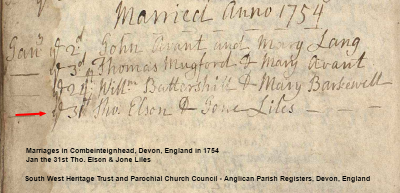 Married Anno 1754
Janʸ yᵉ 2ᵈ John Avant and Mary Lang
yᵉ 3ᵈ Thomas Mugford & Mary Avant
Willᵐ Battershill & Mary Barkewell
yᵉ 31ˢᵗ Tho. Elson & Jone Liles
Marriages in Combeinteignhead, Devon, England in 1754
Jan the 31st Tho. Elson & Jone Liles
South West Heritage Trust and Parochial Church Council - Anglican Parish Registers, Devon, England